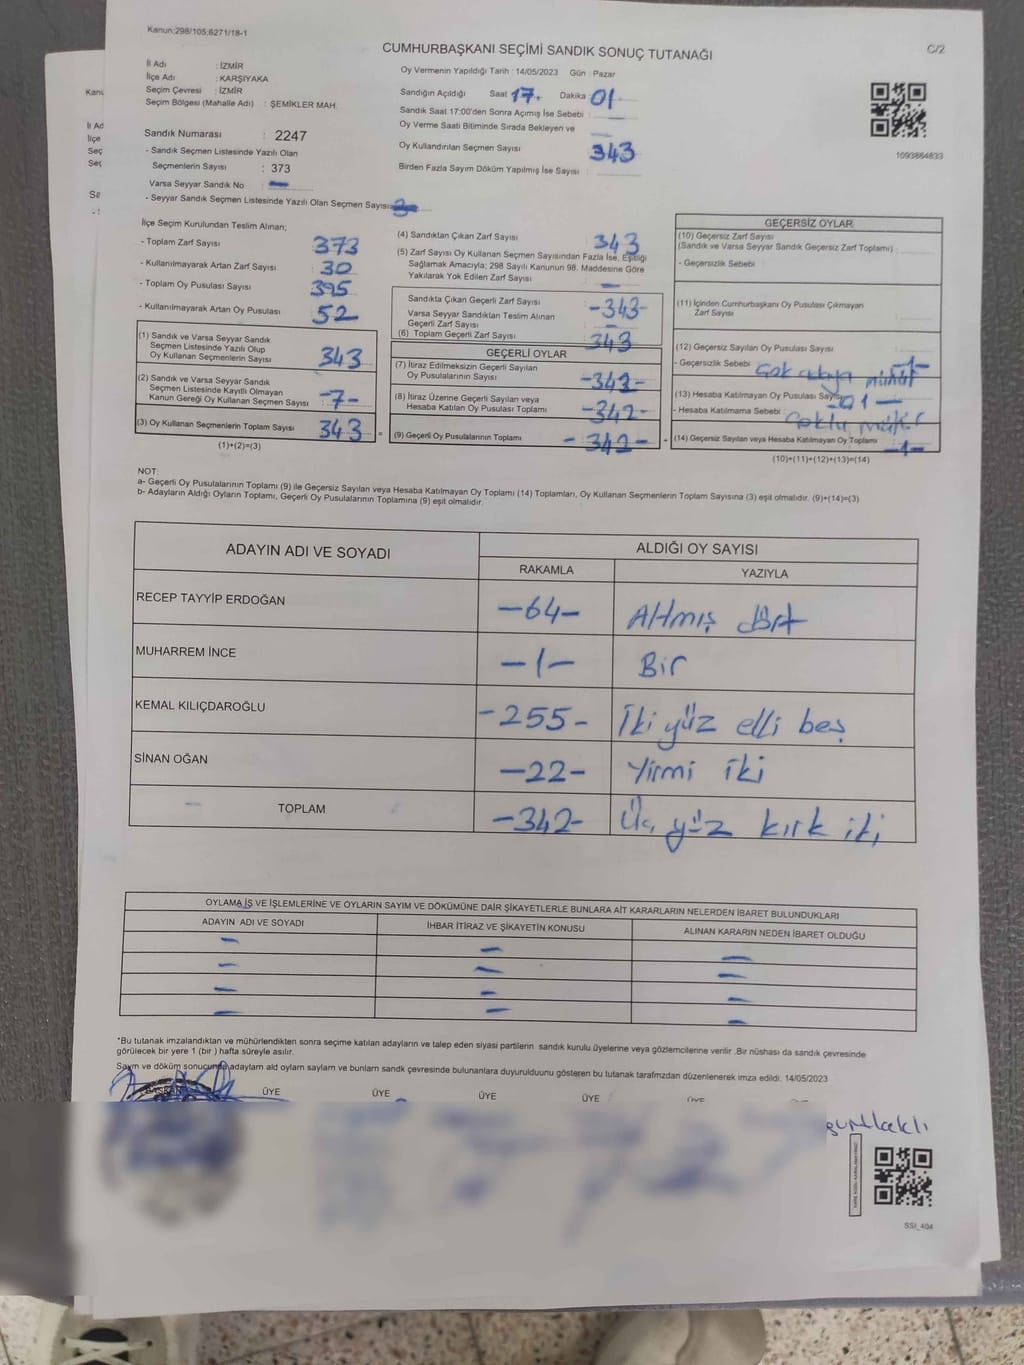 Kanun:298/105;6271/18-1
CUMHURBAŞKANI SEÇİMİ SANDIK SONUÇ TUTANAĞI
C/2
İl Adı : İZMİR
İlçe Adı : KARŞIYAKA
Seçim Çevresi : İZMİR
Seçim Bölgesi (Mahalle Adı) : ŞEMİKLER MAH.
Sandık Numarası : 2247
- Sandık Seçmen Listesinde Yazılı Olan
Seçmenlerin Sayısı : 373
Varsa Seyyar Sandık No :
- Seyyar Sandık Seçmen Listesinde Yazılı Olan Seçmen Sayısı:
Oy Vermenin Yapıldığı Tarih : 14/05/2023 Gün : Pazar
Sandığın Açıldığı Saat 17. Dakika 01
Sandık Saat 17:00'den Sonra Açımış İse Sebebi :
Oy Verme Saati Bitiminde Sırada Bekleyen ve
Oy Kullandırılan Seçmen Sayısı 343
Birden Fazla Sayım Döküm Yapılmış İse Sayısı :
1093864833
İlçe Seçim Kurulundan Teslim Alınan;
- Toplam Zarf Sayısı 373
- Kullanılmayarak Artan Zarf Sayısı : 30
- Toplam Oy Pusulası Sayısı : 395
- Kullanılmayarak Artan Oy Pusulası : 52
(1) Sandık ve Varsa Seyyar Sandık
Seçmen Listesinde Yazılı Olup
Oy Kullanan Seçmenlerin Sayısı 343
(2) Sandık ve Varsa Seyyar Sandık
Seçmen Listesinde Kayıtlı Olmayan
Kanun Gereği Oy Kullanan Seçmen Sayısı -7-
(3) Oy Kullanan Seçmenlerin Toplam Sayısı 343 =
(1)+(2)=(3)
(4) Sandıktan Çıkan Zarf Sayısı : 343
(5) Zarf Sayısı Oy Kullanan Seçmen Sayısından Fazla İse, Eşitliği
Sağlamak Amacıyla; 298 Sayılı Kanunun 98. Maddesine Göre
Yakılarak Yok Edilen Zarf Sayısı : -
Sandıkta Çıkan Geçerli Zarf Sayısı -343-
Varsa Seyyar Sandıktan Teslim Alınan
Geçerli Zarf Sayısı :
(6) Toplam Geçerli Zarf Sayısı : 343
GEÇERLİ OYLAR
(7) İtiraz Edilmeksizin Geçerli Sayılan
Oy Pusulalarının Sayısı -342-
(8) İtiraz Üzerine Geçerli Sayılan veya
Hesaba Katılan Oy Pusulası Toplamı -342-
(9) Geçerli Oy Pusulalarının Toplamı -342- +
GEÇERSİZ OYLAR
(10) Geçersiz Zarf Sayısı
(Sandık ve Varsa Seyyar Sandık Geçersiz Zarf Toplamı) :
- Geçersizlik Sebebi :
(11) İçinden Cumhurbaşkanı Oy Pusulası Çıkmayan
Zarf Sayısı :
(12) Geçersiz Sayılan Oy Pusulası Sayısı : -1-
- Geçersizlik Sebebi
(13) Hesaba Katılmayan Oy Pusulası Sayısı -01-
- Hesaba Katılmama Sebebi :
(14) Geçersiz Sayılan veya Hesaba Katılmayan Oy Toplamı -1-
(10)+(11)+(12)+(13)=(14)
NOT:
a- Geçerli Oy Pusulalarının Toplamı (9) ile Geçersiz Sayılan veya Hesaba Katılmayan Oy Toplamı (14) Toplamları, Oy Kullanan Seçmenlerin Toplam Sayısına (3) eşit olmalıdır. (9)+(14)=(3)
b- Adayların Aldığı Oyların Toplamı, Geçerli Oy Pusulalarının Toplamına (9) eşit olmalıdır.
ADAYIN ADI VE SOYADI
ALDIĞI OY SAYISI
RAKAMLA YAZIYLA
RECEP TAYYİP ERDOĞAN -64- Altmış dört
MUHARREM İNCE -1- Bir
KEMAL KILIÇDAROĞLU -255- İki yüz elli beş
SİNAN OĞAN -22- Yirmi iki
TOPLAM -342- Üç yüz kırk iki
OYLAMA İŞ VE İŞLEMLERİNE VE OYLARIN SAYIM VE DÖKÜMÜNE DAİR ŞİKAYETLERLE BUNLARA AİT KARARLARIN NELERDEN İBARET BULUNDUKLARI
ADAYIN ADI VE SOYADI İHBAR İTİRAZ VE ŞİKAYETİN KONUSU ALINAN KARARIN NEDEN İBARET OLDUĞU
*Bu tutanak imzalandıktan ve mühürlendikten sonra seçime katılan adayların ve talep eden siyasi partilerin sandık kurulu üyelerine veya gözlemcilerine verilir .Bir nüshası da sandık çevresinde
görülecek bir yere 1 (bir ) hafta süreyle asılır.
Sayım ve döküm sonucunda adayların ald oyların sayıları ve bunların sandk çevresinde bulunanlara duyurulduunu gösteren bu tutanak tarafmzdan düzenlenerek imza edildi. 14/05/2023
BAŞKAN ÜYE ÜYE ÜYE ÜYE ÜYE
SSI_404